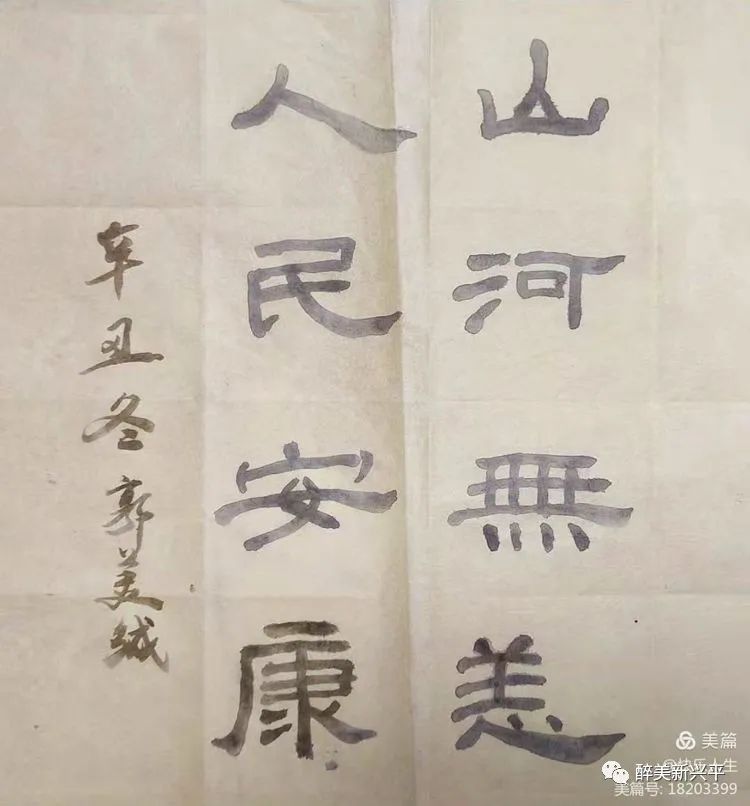 山河無恙
人民安康
辛丑冬 郭美
美篇
@快乐人生
醉美新兴平
美篇号: 18203399